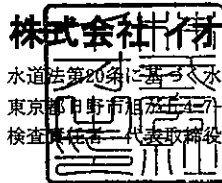 株式会社イオ
水道法第20条に基づく水
東京都日野市旭が丘
検査責任者 代表取締役